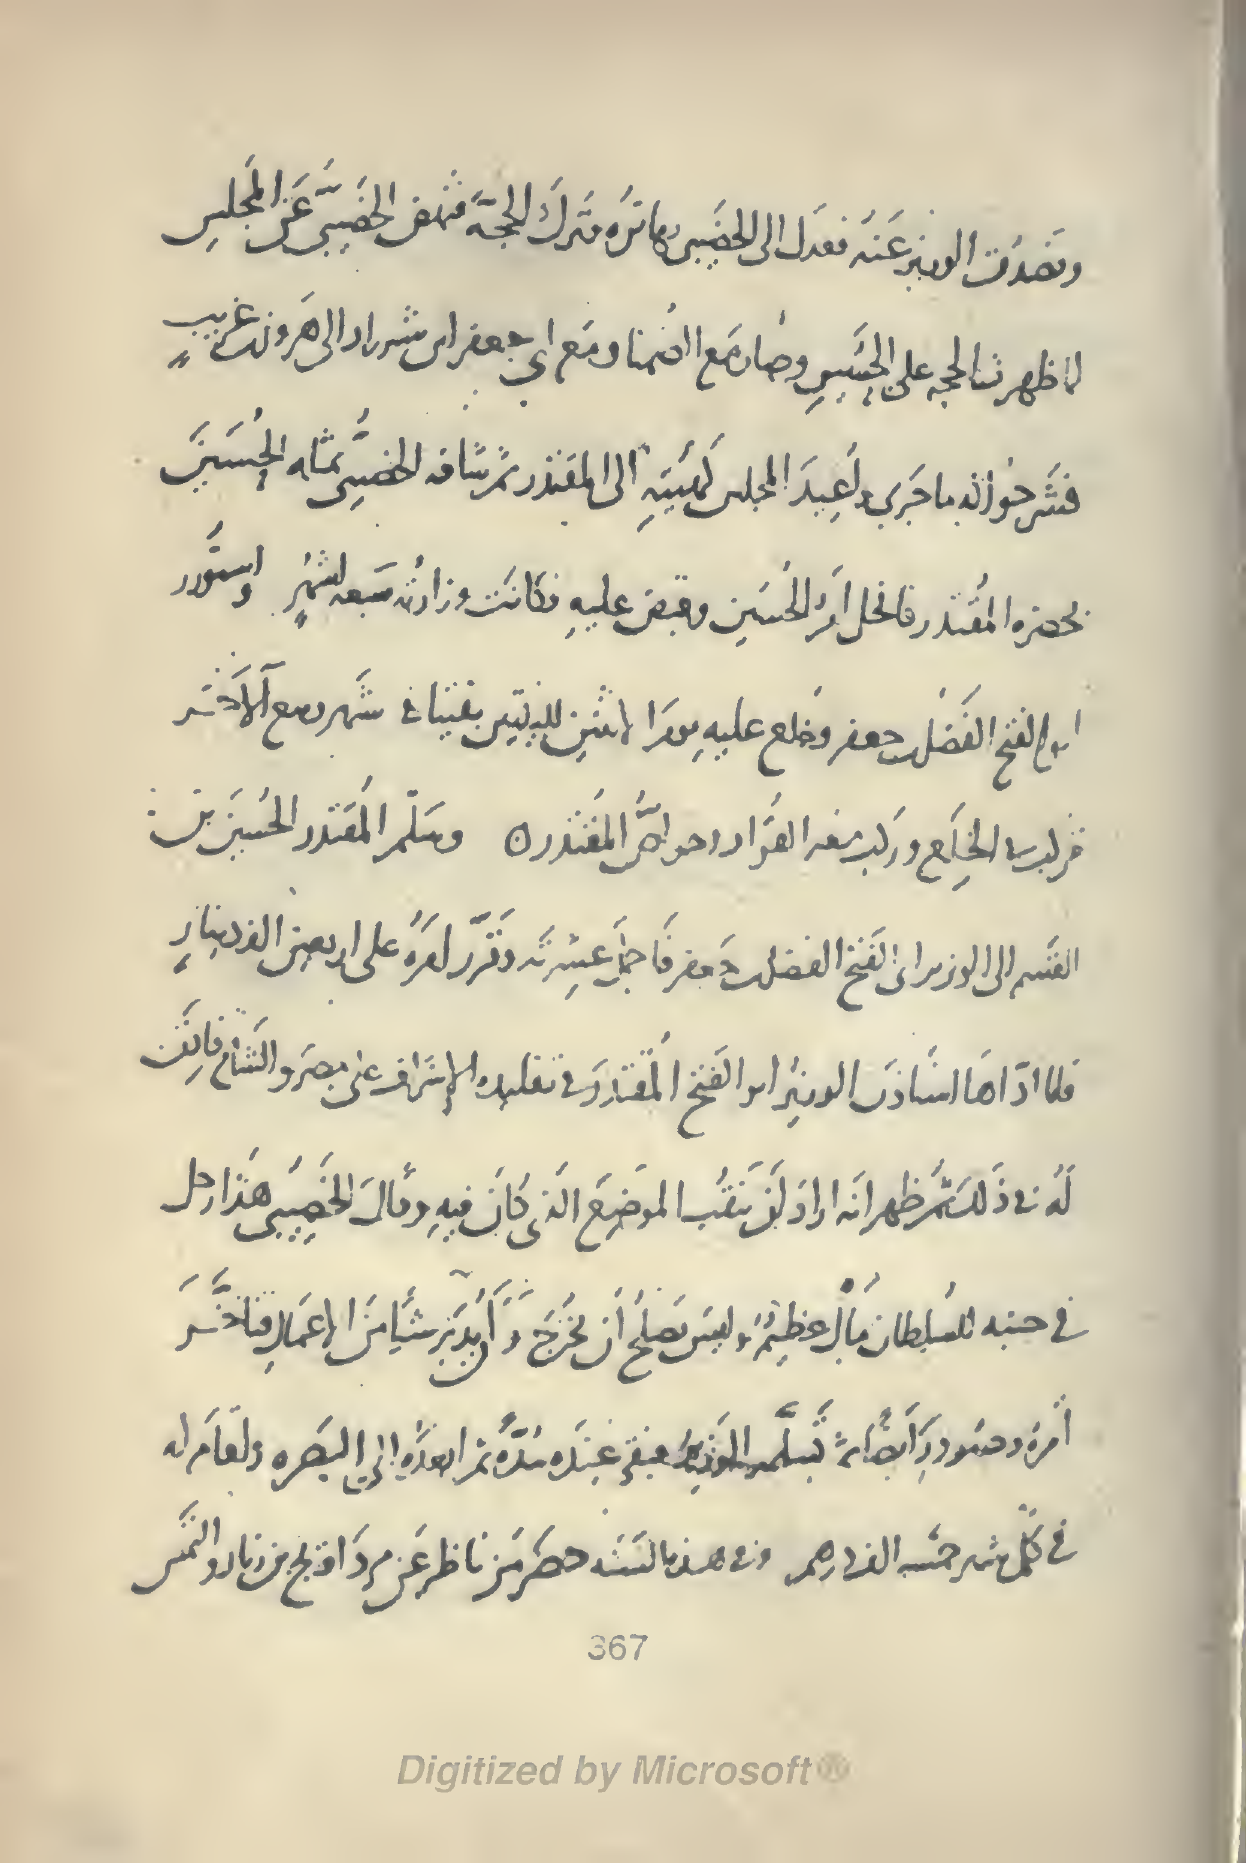 وتصدف الوزير عنه فعدل الى الخصيبى بهاتره وترك الحجة فنهض الخصيبى عن المجلس
لما ظهرت الحجه على الحسين وصار مع الضمنا ومع ابى جعفر ابن شيرزاد الى هرون بن غريب
فشرحوا له ما جرى واعيد المجلس كهيئته الى المقتدر ثم شافه الخصيبى بمثله الحسين
بحضره المقتدر فانحل امر الحسين وقبض عليه فكانت وزارته سبعه اشهر واستوزر
ابو الفتح الفضل بن جعفر وخلع عليه يوم الاثنين لليلتين بقيتا فى شهر ربيع الآخر
فركب فى الخلع وركب معه القواد وخواص المقتدر ه وسلم المقتدر الحسين بن
القسم الى الوزير ابى الفتح الفضل بن جعفر فاجمل عشرته وتقرر امره على اربعين الف دينار
فلما اداها استاذن الوزير ابو الفتح المقتدر فى تقليده الإشراف على مصر والشام فاذن
له فى ذلك ثم ظهر انه اراد ان ينقب الموضع الذى كان فيه وقال الخصيبى هذا رجل
فى جنبه للسلطان مال عظيم وليس يصلح ان يخرج و يدبر شيأ من الاعمال فتأخر
امره وحضور دار ايضا ثم تسلمه الوزير فبقى عنده مدة ثم ابعده الى البصره واقام له
فى كل شهر خمسه الف درهم وفى هذه السنه حضر من ناظر عن مرداويج بن زيار والتمس
367
Digitized by Microsoft®